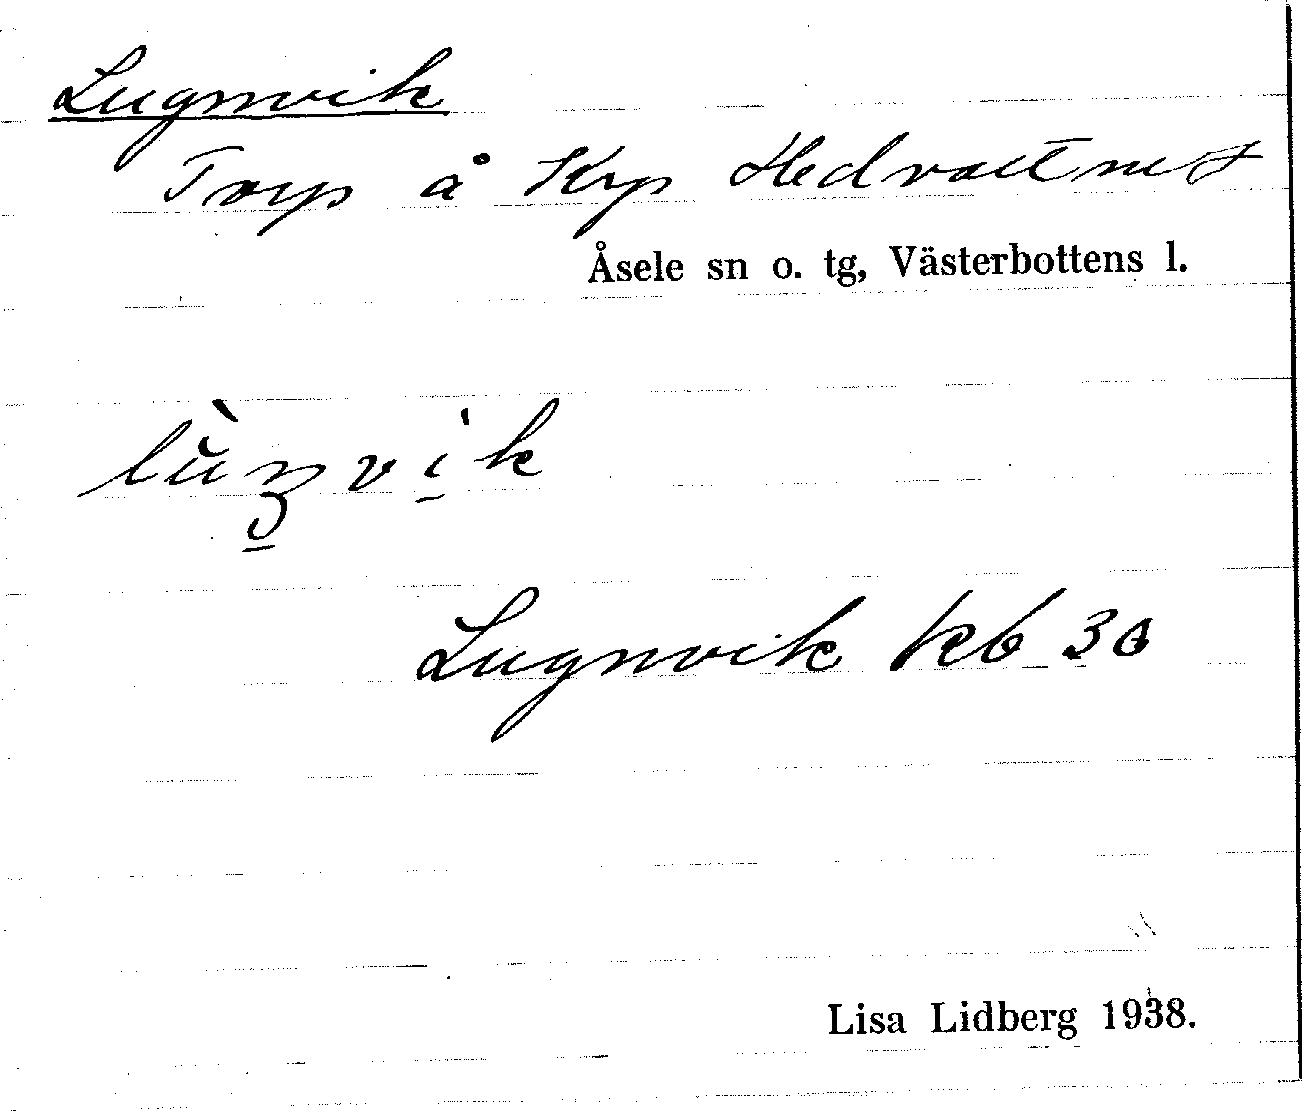 Lugnvik
Torp å Krp Hedvattnet
Åsele sn o. tg, Västerbottens l.
Lugnvik kb 30
Lisa Lidberg 1938.